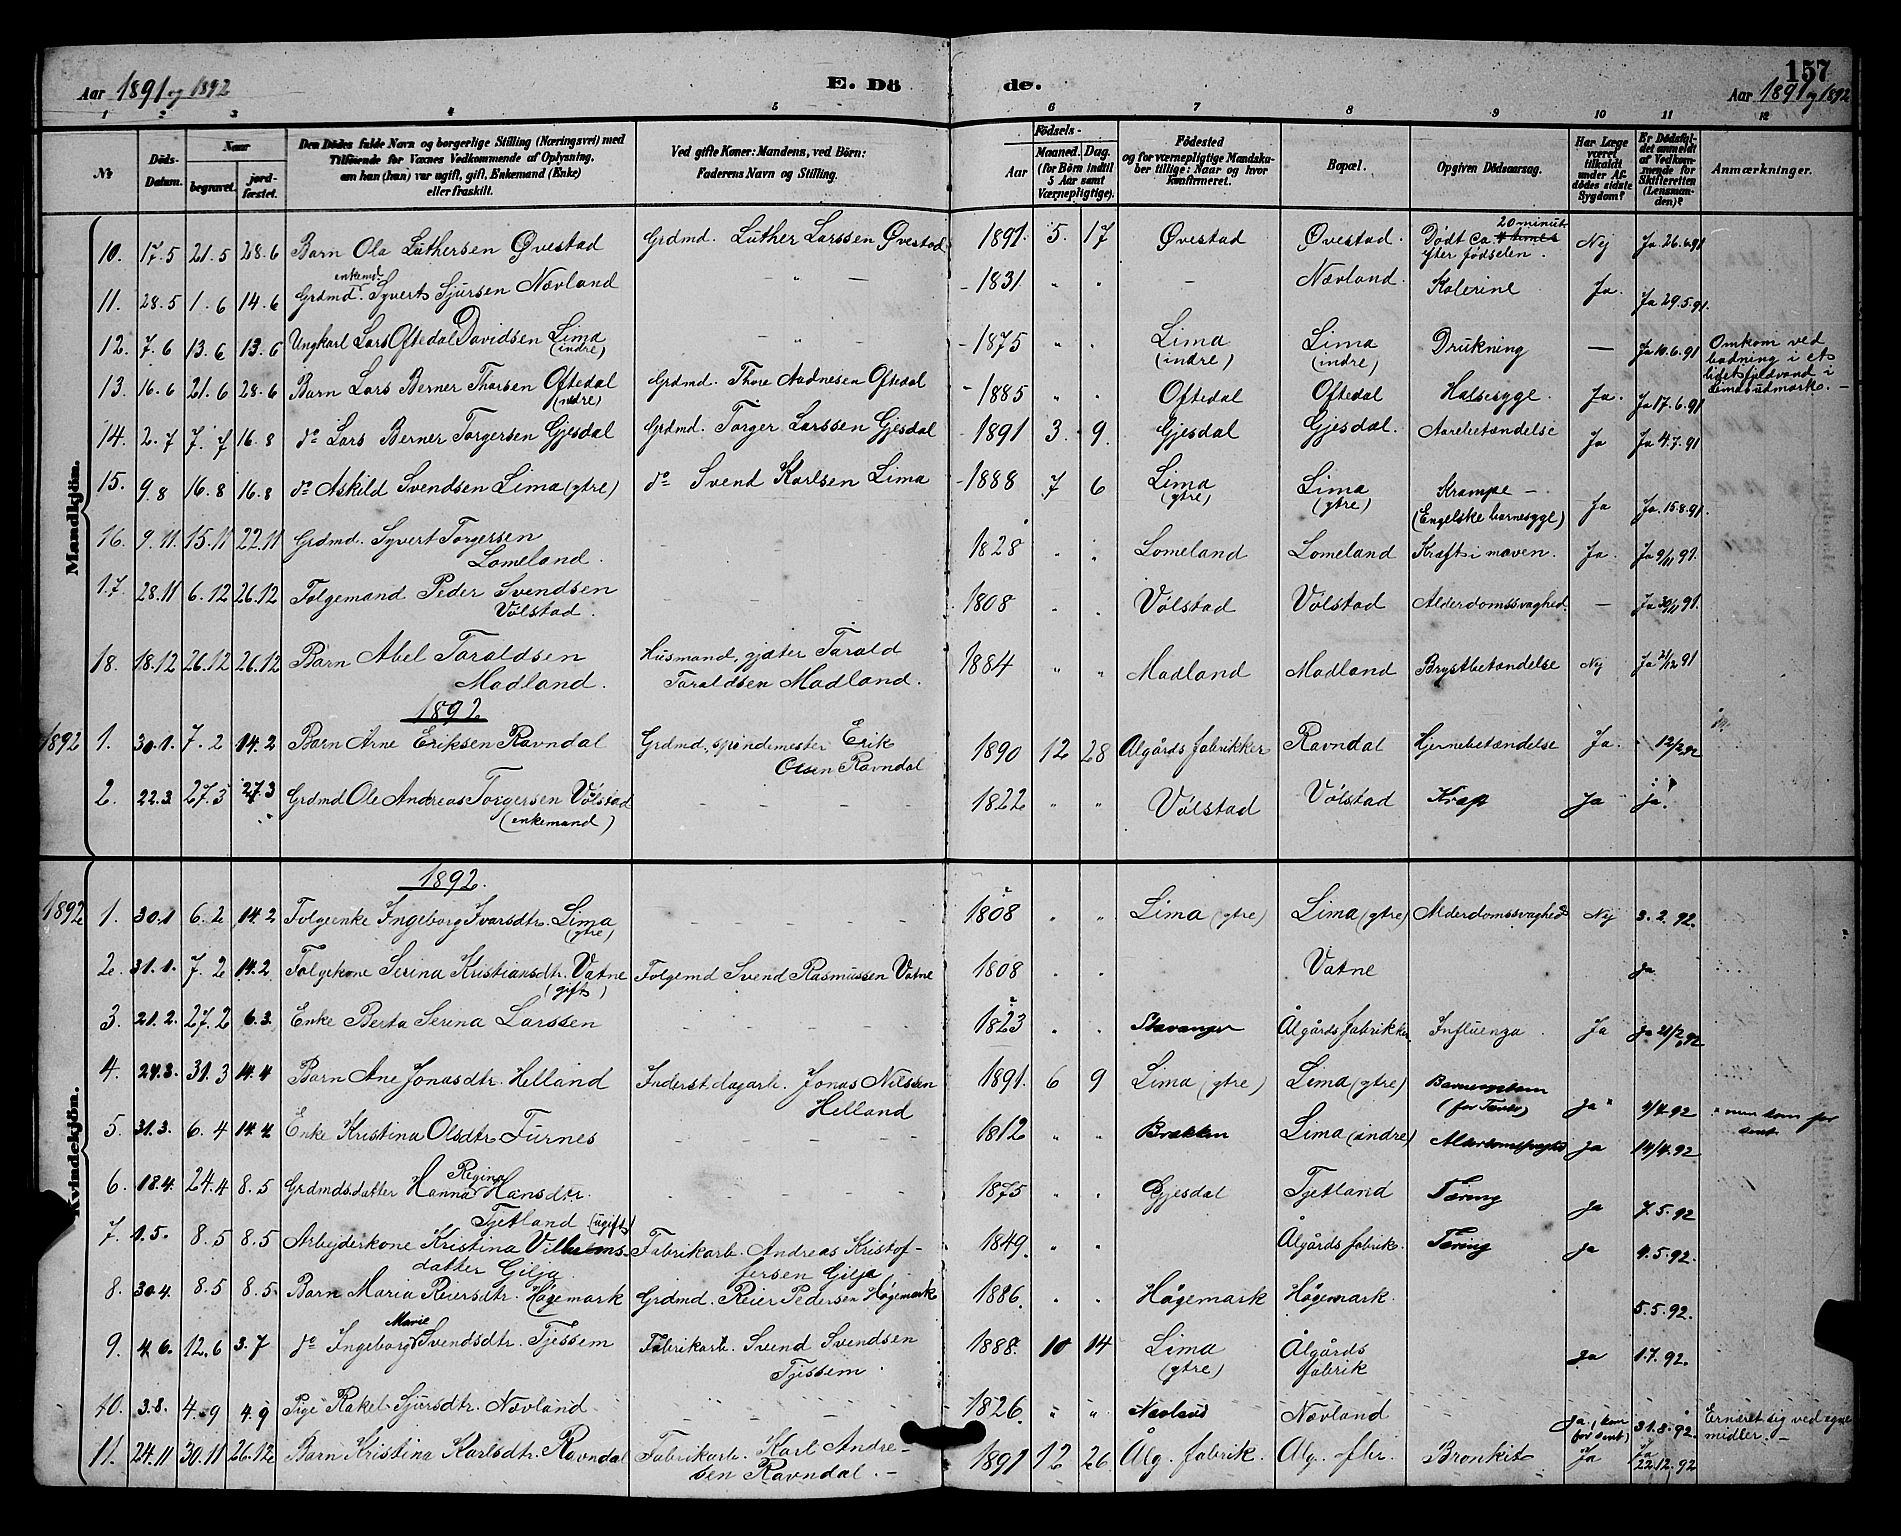 Aar 1891 og 1892
E. Dö
de.
157
Aar 1891 og 1892
1 2 3 4 5 6 7 8 9 10 11 12
No
Döds-Datum.
Naar
begravet.
jord-fæstet.
Den Dödes fulde Navn og borgerlige Stilling (Næringsvei) med
Tilföiende for Voxnes Vedkommende af Oplysning,
om han (hun) var ugift, gift, Enkemand (Enke)
eller fraskilt.
Ved gifte Koner: Mandens, ved Börn:
Faderens Navn og Stilling.
Födsels-
Aar
Maaned. Dag.
(for Börn indtil
5 Aar samt
Værnepligtige).
Födested
og for værnepligtige Mandska-
ber tillige: Naar og hvor
konfirmeret.
Bopæl.
Opgiven Dödsaarsag.
Har Læge
været
tilkaldt
under Af-
dödes sidste
Sygdom?
Er Dödsfal-
det anmeldt
af Vedkom-
mende for
Skifteretten
(Lensman-
den)?
Anmærkninger.
Mandkjön.
10. 17.5 21.5 28.6 Barn Ola Luthersen Øvestad Grdmd. Luther Larssen Øvestad 1891. 5. 17 Øvestad Øvestad. Dødt ca. 20 minut. efter fødselen. Nej Ja 26.6.91
11. 28.5 1.6 14.6 Grdmd. enkemd. Syvert Sjursen Nævland - " - 1831 " " - Nævland. Kolerine Ja. Ja 29.5.91.
12. 7.6 13.6 13.6 Ungkarl Lars Oftedal Davidsen Lima (indre) - " - 1875 " " Lima (indre) Lima (indre) Drukning — Ja 10.6.91 Omkom ved badning i et lidet fjeldvand i Lima's udmark. —
13. 16.6 21.6 28.6 Barn Lars Berner Thorsen Oftedal (indre) Grdmd. Thore Aadnesen Oftedal 1885 " " Oftedal Oftedal Halsesyge. Ja. Ja 17.6.91
14. 2.7 7.7 16.8 do Lars Berner Torgersen Gjesdal Grdmd. Torger Larssen Gjesdal 1891 3. 9. Gjesdal Gjesdal. Aarebetændelse Ja Ja 4.7.91
15. 9.8 16.8 16.8 do Askild Svendsen Lima (ytre) do Svend Karlsen Lima 1888 7 6 Lima (ytre) Lima (ytre) Krampe — (Engelske barnesyge) Ja Ja. 15.8.91.
16. 9.11. 15.11 22.11 Grdmd. Syvert Torgersen Lomeland. 1828 " " Lomeland Lomeland Kræft i maven. Ja. Ja 9/11 91.
17. 28.11 6.12 26.12 Folgemand Peder Svendsen Vølstad. 1808 " " Vølstad Vølstad Alderdomssvaghed. — Ja 30/11 91.
18. 18.12 26.12 26.12 Barn Abel Taraldsen Madland. Husmand, gjæter Tarald Taraldsen Madland. 1884 " " Madland Madland Brystbetændelse Nej Ja 21/12 91
1892
1892 1. 30.1. 7.2 14.2 Barn Arne Eriksen Ravndal Grdmd., spondemester Erik Olsen Ravndal 1890 12 28 Ålgårds fabrikker Ravndal Hjernebetændelse Ja. 12/2 92
2. 22.3 27.3 27.3 Grdmd Ole Andreas Torgersen Vølstad (enkemand) 1822 " " Vølstad Vølstad Kræft Ja Ja.
Kvindekjön.
1892.
1892 1. 30.1 6.2 14.2 Folgeenke Ingeborg Ivarsdtr. Lima (ytre) 1808 " " Lima (ytre) Lima (ytre) Alderdomssvaghed Nej 3.2.92.
2. 31.1. 7.2 14.2 Folgekone Serina Kristiansdtr. Vatne (gift) Folgemd Svend Rasmussen Vatne 1808 " " Vatne Ja
3. 21.2. 27.2 6.3. Enke Berta Serina Larssen 1823 " " Stavanger Ålgårds fabrikker Influenza. Ja Ja 21/2 92
4. 24.3. 31.3 14.4 Barn Ane Jonasdtr. Helland Inderst. dagarb. Jonas Nilssen Helland 1891. 6 9 Lima (ytre) Lima (ytre) (for Tænder) Ja " 4/4.92 " men kom for sent
5. 31.3. 6.4 14.4 Enke Kristina Olsdtr. Furnes 1812 " " Brekken Lima (indre) Alderdomssvaghed Ja 14/4.92
6. 18.4. 24.4 8.5 Grdmdsdatter Hanna Regina Hansdtr. Tjetland (ugift) 1875 " " Gjesdal Tjetland Tæring Ja 7.5.92
7. 1.5. 8.5 8.5 Arbejderkone Kristina Vilhelms-datter Gilja Fabrikarb. Andreas Kristof-fersen Gilja 1849. " " Ålgårds fabrik. Tæring Ja 4.5.92.
8. 30.4. 8.5 8.5. Barn Maria Reiersdtr. Høgemark Grdmd. Reier Pedersen Høgemark 1886. " " Høgemark Høgemark. 5.5.92.
9. 4.6. 12.6 3.7 do Ingeborg Marie Svendsdtr. Tjessem Fabrikarb. Svend Svendsen Tjessem. 1888. 10 14 Lima (ytre) Ålgårds fabrik Ja 1.7.92.
10. 3.8. 4.9 4.9 Pige Rakel Sjursdtr. Nævland. 1826. " " Nævland Nævland Ja, (kom for sent) 31.8.92. Ernæret sig ved egne midler. —
11. 24.11 30.11 26.12 Barn Kristina Karlsdtr. Ravndal Fabrikarb. Karl Andre-sen Ravndal. — 1891 12 26 Ålg. fabrik. Ålg. fbr. Bronkit Ja Ja 22.12.92